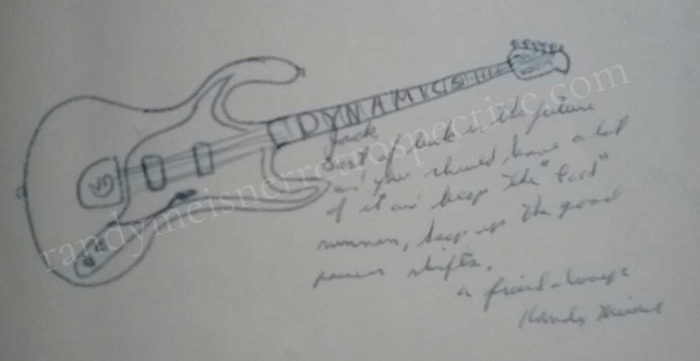 DYNAMICS
Jack
Best of luck in the future
an' you should have a lot
of it an' keep the "Ford"
runnen, keep up the good
power shifts.
a friend always
Randy Meisner
randymeisnerretrospective.com